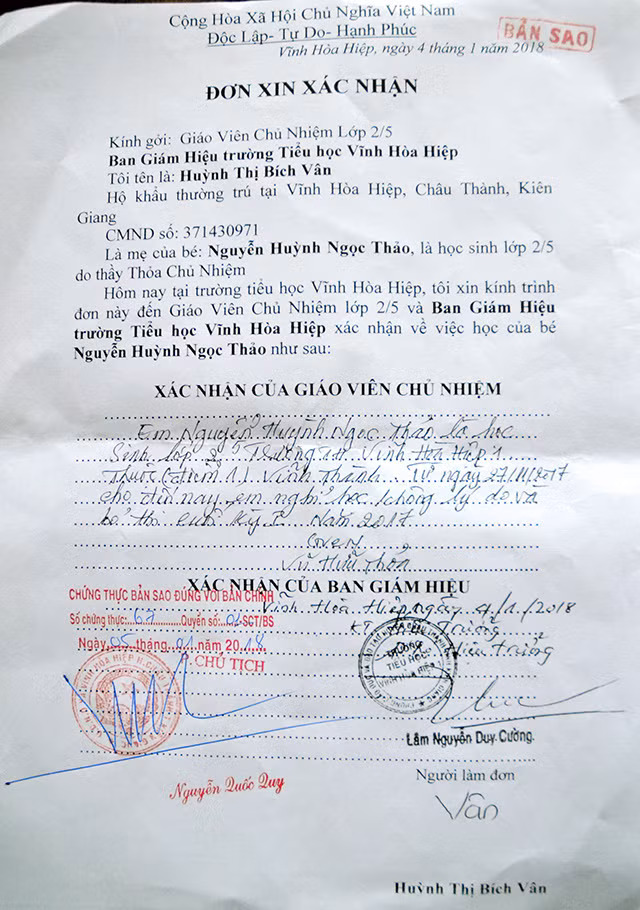 Cộng Hòa Xã Hội Chủ Nghĩa Việt Nam
Độc Lập- Tự Do- Hạnh Phúc
BẢN SAO
Vĩnh Hòa Hiệp, ngày 4 tháng 1 năm 2018
ĐƠN XIN XÁC NHẬN
Kính gởi: Giáo Viên Chủ Nhiệm Lớp 2/5
Ban Giám Hiệu trường Tiểu học Vĩnh Hòa Hiệp
Tôi tên là: Huỳnh Thị Bích Vân
Hộ khẩu thường trú tại Vĩnh Hòa Hiệp, Châu Thành, Kiên
Giang
CMND số: 371430971
Là mẹ của bé: Nguyễn Huỳnh Ngọc Thảo, là học sinh lớp 2/5
do thầy Thỏa Chủ Nhiệm
Hôm nay tại trường tiểu học Vĩnh Hòa Hiệp, tôi xin kính trình
đơn này đến Giáo Viên Chủ Nhiệm lớp 2/5 và Ban Giám Hiệu
trường Tiểu học Vĩnh Hòa Hiệp xác nhận về việc học của bé
Nguyễn Huỳnh Ngọc Thảo như sau:
XÁC NHẬN CỦA GIÁO VIÊN CHỦ NHIỆM
Em Nguyễn Huỳnh Ngọc Thảo là học
sinh lớp 2/5 Trường TH Vĩnh Hòa Hiệp 1
Thuộc (điểm 1) Vĩnh Thành. Từ ngày 27/11/2017
cho đến nay, em nghỉ học không lý do và
bỏ thi cuối kỳ I năm 2017
GVCN
Vũ Hữu Thỏa
XÁC NHẬN CỦA BAN GIÁM HIỆU
CHỨNG THỰC BẢN SAO ĐÚNG VỚI BẢN CHÍNH
Số chứng thực: 67 Quyển số: 01-SCT/BS
Ngày 05 tháng 01 năm 2018
CHỦ TỊCH
Nguyễn Quốc Quy
Vĩnh Hòa Hiệp, ngày 4/1/2018
KT Hiệu Trưởng
TRƯỜNG
TIỂU HỌC
VĨNH HÒA HIỆP 1
Lâm Nguyễn Duy Cường
Người làm đơn
Vân
Huỳnh Thị Bích Vân